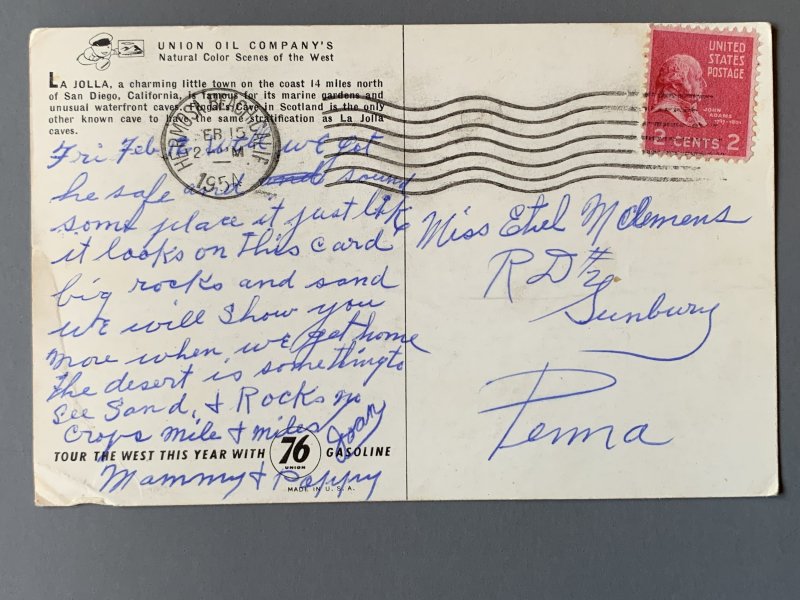 UNION OIL COMPANY'S
Natural Color Scenes of the West
LA JOLLA, a charming little town on the coast 14 miles north
of San Diego, California, is famous for its marine gardens and
unusual waterfront caves. Fingal's Cave in Scotland is the only
other known cave to have the same stratification as La Jolla
caves.
HERMOSA BEACH CALIF.
FEB 15
2 M
1954
UNITED
STATES
POSTAGE
JOHN
ADAMS
1797-1801
2 CENTS 2
Fri Feb we get
he safe and sound
some place it just like
it looks on this card
big rocks and sand
we will show you
more when we get home
the desert is something to
see Sand, & Rocks no
crops mile & miles
Joan
Mammy & Pappy
TOUR THE WEST THIS YEAR WITH 76 UNION GASOLINE
MADE IN U.S.A.
Miss Ethel McClemens
RD #2
Sunbury
Penna